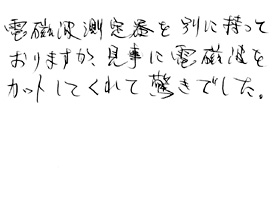 電磁波測定器を別に持って
おりますが、見事に電磁波を
カットしてくれて驚きでした。